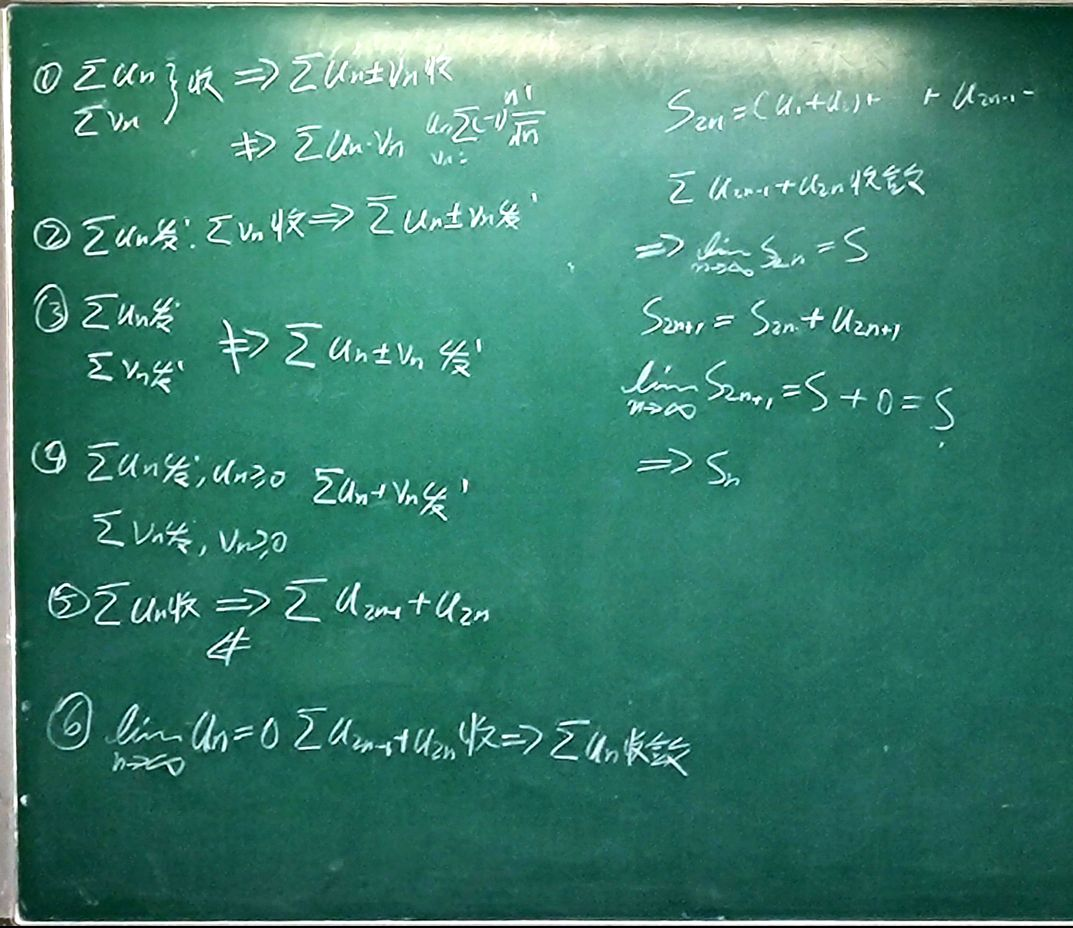 ① ∑un } 收 ⇒ ∑un±vn 收
∑vn
⇏ ∑un·vn un ∑(-1)^(n-1) 1/√n
vn=
② ∑un发. ∑vn收 ⇒ ∑un±vn发
③ ∑un发
∑vn发 ⇏ ∑un±vn 发
④ ∑un发, un≥0 ∑un+vn发
∑vn发, vn≥0
⑤ ∑un收 ⇒ ∑u2n-1+u2n
⇍
⑥ lim n→∞ un=0 ∑u2n-1+u2n 收 ⇒ ∑un收敛
S2n=(u1+u2)+ + u2n-1
∑ u2n-1+u2n 收敛
⇒ lim n→∞ S2n = S
S2n+1 = S2n + u2n+1
lim n→∞ S2n+1 = S + 0 = S
⇒ Sn